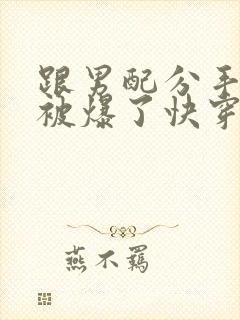 跟男配分手
被爆了快穿
燕不羁